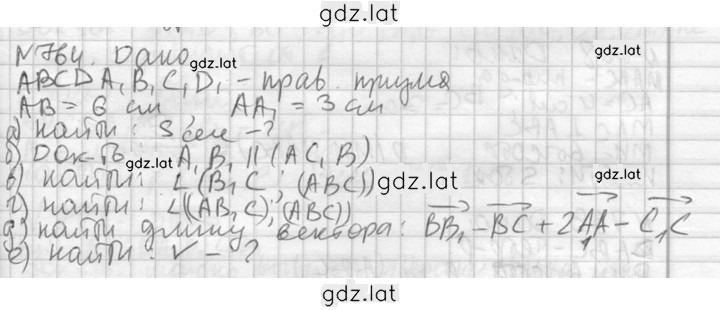 gdz.lat
N764. Дано gdz.lat gdz.lat
ABCDA₁B₁C₁D₁ - прав. призма
AB = 6 см, AA₁ = 3 см
а) найти: Sсеч - ?
б) Док-ть: A₁B₁ || (AC₁B) gdz.lat
в) найти: ∠(B₁C; (ABC)) gdz.lat gdz.lat
г) найти: ∠((AB₁C); (ABC))
д) найти длину вектора: BB₁ - BC + 2A₁A - C₁C
е) найти: V - ?
gdz.lat